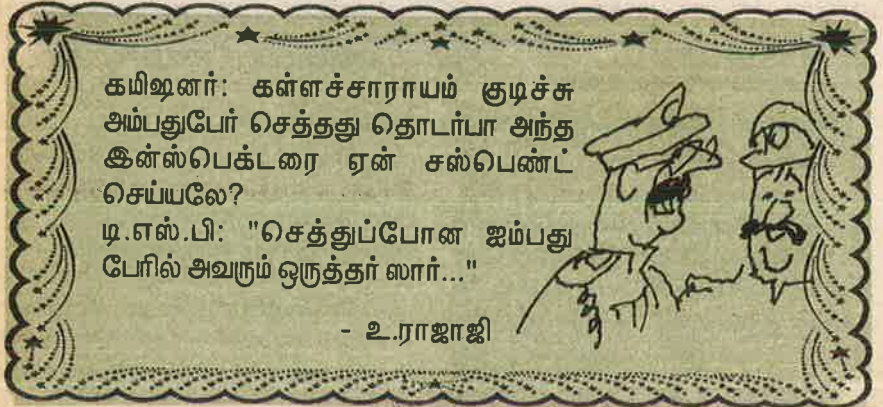 கமிஷனர்: கள்ளச்சாராயம் குடிச்சு
அம்பதுபேர் செத்தது தொடர்பா அந்த
இன்ஸ்பெக்டரை ஏன் சஸ்பெண்ட்
செய்யலே?
டி.எஸ்.பி: "செத்துப்போன ஐம்பது
பேரில் அவரும் ஒருத்தர் ஸார்..."
- உ.ராஜாஜி